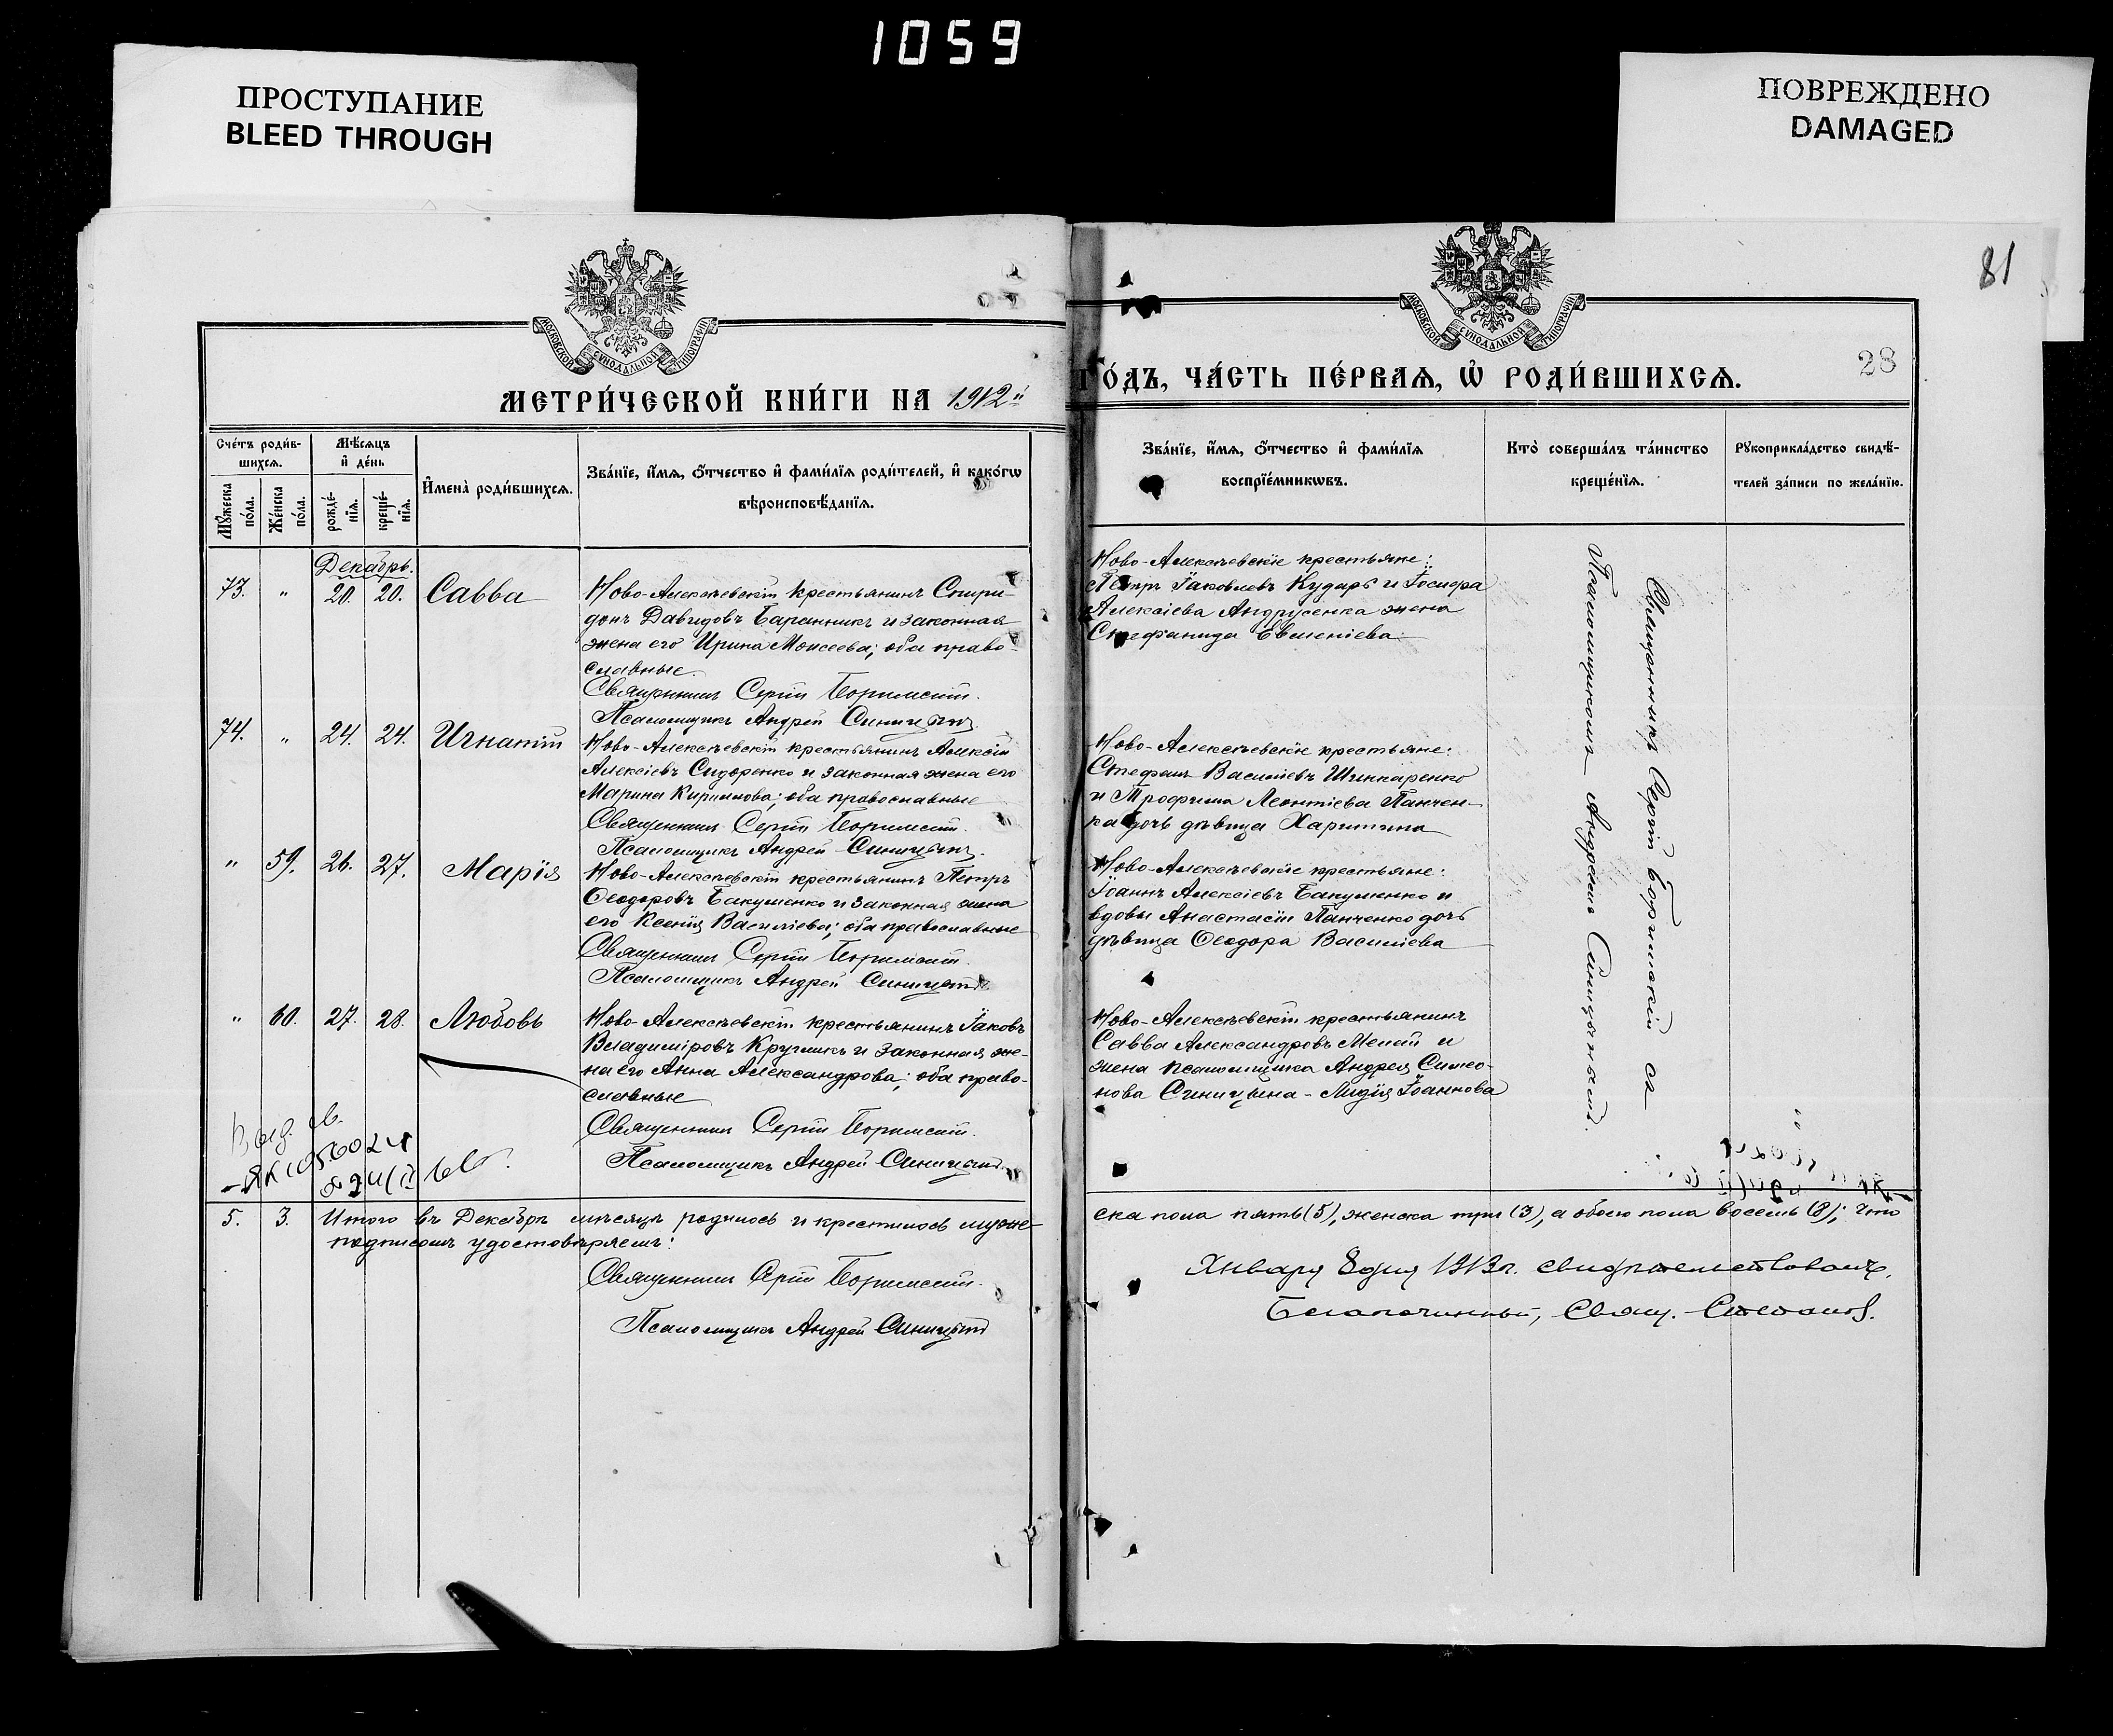 1059
ПРОСТУПАНИЕ
BLEED THROUGH
ПОВРЕЖДЕНО
DAMAGED
81
28
МОСКОВСКОЙ СѴНОДАЛЬНОЙ ТИПОГРАФІИ
МОСКОВСКОЙ СѴНОДАЛЬНОЙ ТИПОГРАФІИ
МЕТРИ́ЧЕСКОЙ КНИ́ГИ НА 1912й
ГО́ДЪ, ЧА́СТЬ ПЕ́РВАѦ, Ѡ РОДИ́ВШИХСѦ.
Сче́тъ роди́в-
шихсѧ.
Мꙋ́жеска по́ла.
Же́нска по́ла.
Мѣ́сѧцъ
и҆ де́нь
рожде́-
нїѧ.
креще́-
нїѧ.
И҆мена̀ роди́вшихсѧ.
Зва́нїе, и҆́мѧ, ѻ҆́тчество и҆ фами́лїѧ роди́телей, и҆ како́гѡ
вѣроисповѣ́данїѧ.
Зва́нїе, и҆́мѧ, ѻ҆́тчество и҆ фами́лїѧ
воспрїе́мникѡвъ.
Кто̀ соверша́лъ та́инство
креще́нїѧ.
Рꙋкоприкла́дство свидѣ́-
телей за́писи по жела́нїю.
Декабрь.
73. " 20. 20. Савва
Ново-Алексѣевскій крестьянинъ Спири-
донъ Давидовъ Баранникъ и законная
жена его Ирина Моисеева; оба право-
славные.
Священникъ Сергій
Псаломщикъ Андрей Синицынъ
Ново-Алексѣевскіе крестьяне:
Петръ Іаковлевъ Кударь и Іосифа
Алексіева Андрусенка жена
Стефанида Евменіева
74. " 24. 24. Игнатій
Ново-Алексѣевскій крестьянинъ Алексій
Алексіевъ Сидоренко и законная жена его
Марина Кириллова; оба православные
Священникъ Сергій
Псаломщикъ Андрей Синицынъ.
Ново-Алексѣевскіе крестьяне:
Стефанъ Василіевъ Шинкаренко
и Трофима Леонтіева Панчен-
ка дочь дѣвица Харитина
" 59. 26. 27. Марія
Ново-Алексѣевскій крестьянинъ Петръ
Ѳеодоровъ Бакуменко и законная жена
его Ксенія Василіева; оба православные
Священникъ Сергій
Псаломщикъ Андрей Синицынъ
Ново-Алексѣевскіе крестьяне:
Іоаннъ Алексіевъ Бакуменко и
вдовы Анастасіи Панченко дочь
дѣвица Ѳеодора Василіева
" 60. 27. 28. Любовь
Ново-Алексѣевскій крестьянинъ Іаковъ
Владиміровъ Кругликъ и законная же-
на его Анна Александрова; оба право-
славные
Священникъ Сергій
Псаломщикъ Андрей Синицынъ
Ново-Алексѣевскій крестьянинъ
Савва Александровъ Мелай и
жена псаломщика Андрея Симео-
нова Синицына - Лидія Іоаннова
Священникъ Сергій съ
Псаломщикомъ Андреемъ Синицынымъ.
Выд. св.
5. 3. Итого въ Декабрѣ мѣсяцѣ родилось и крестилось муже-
ска пола пять (5), женска три (3), а обоего пола восемь (8); что
подписомъ удостовѣряемъ:
Священникъ Сергій
Псаломщикъ Андрей Синицынъ
Января 8 дня 1913 г. свидѣтельствовалъ,
Благочинный, Свящ.